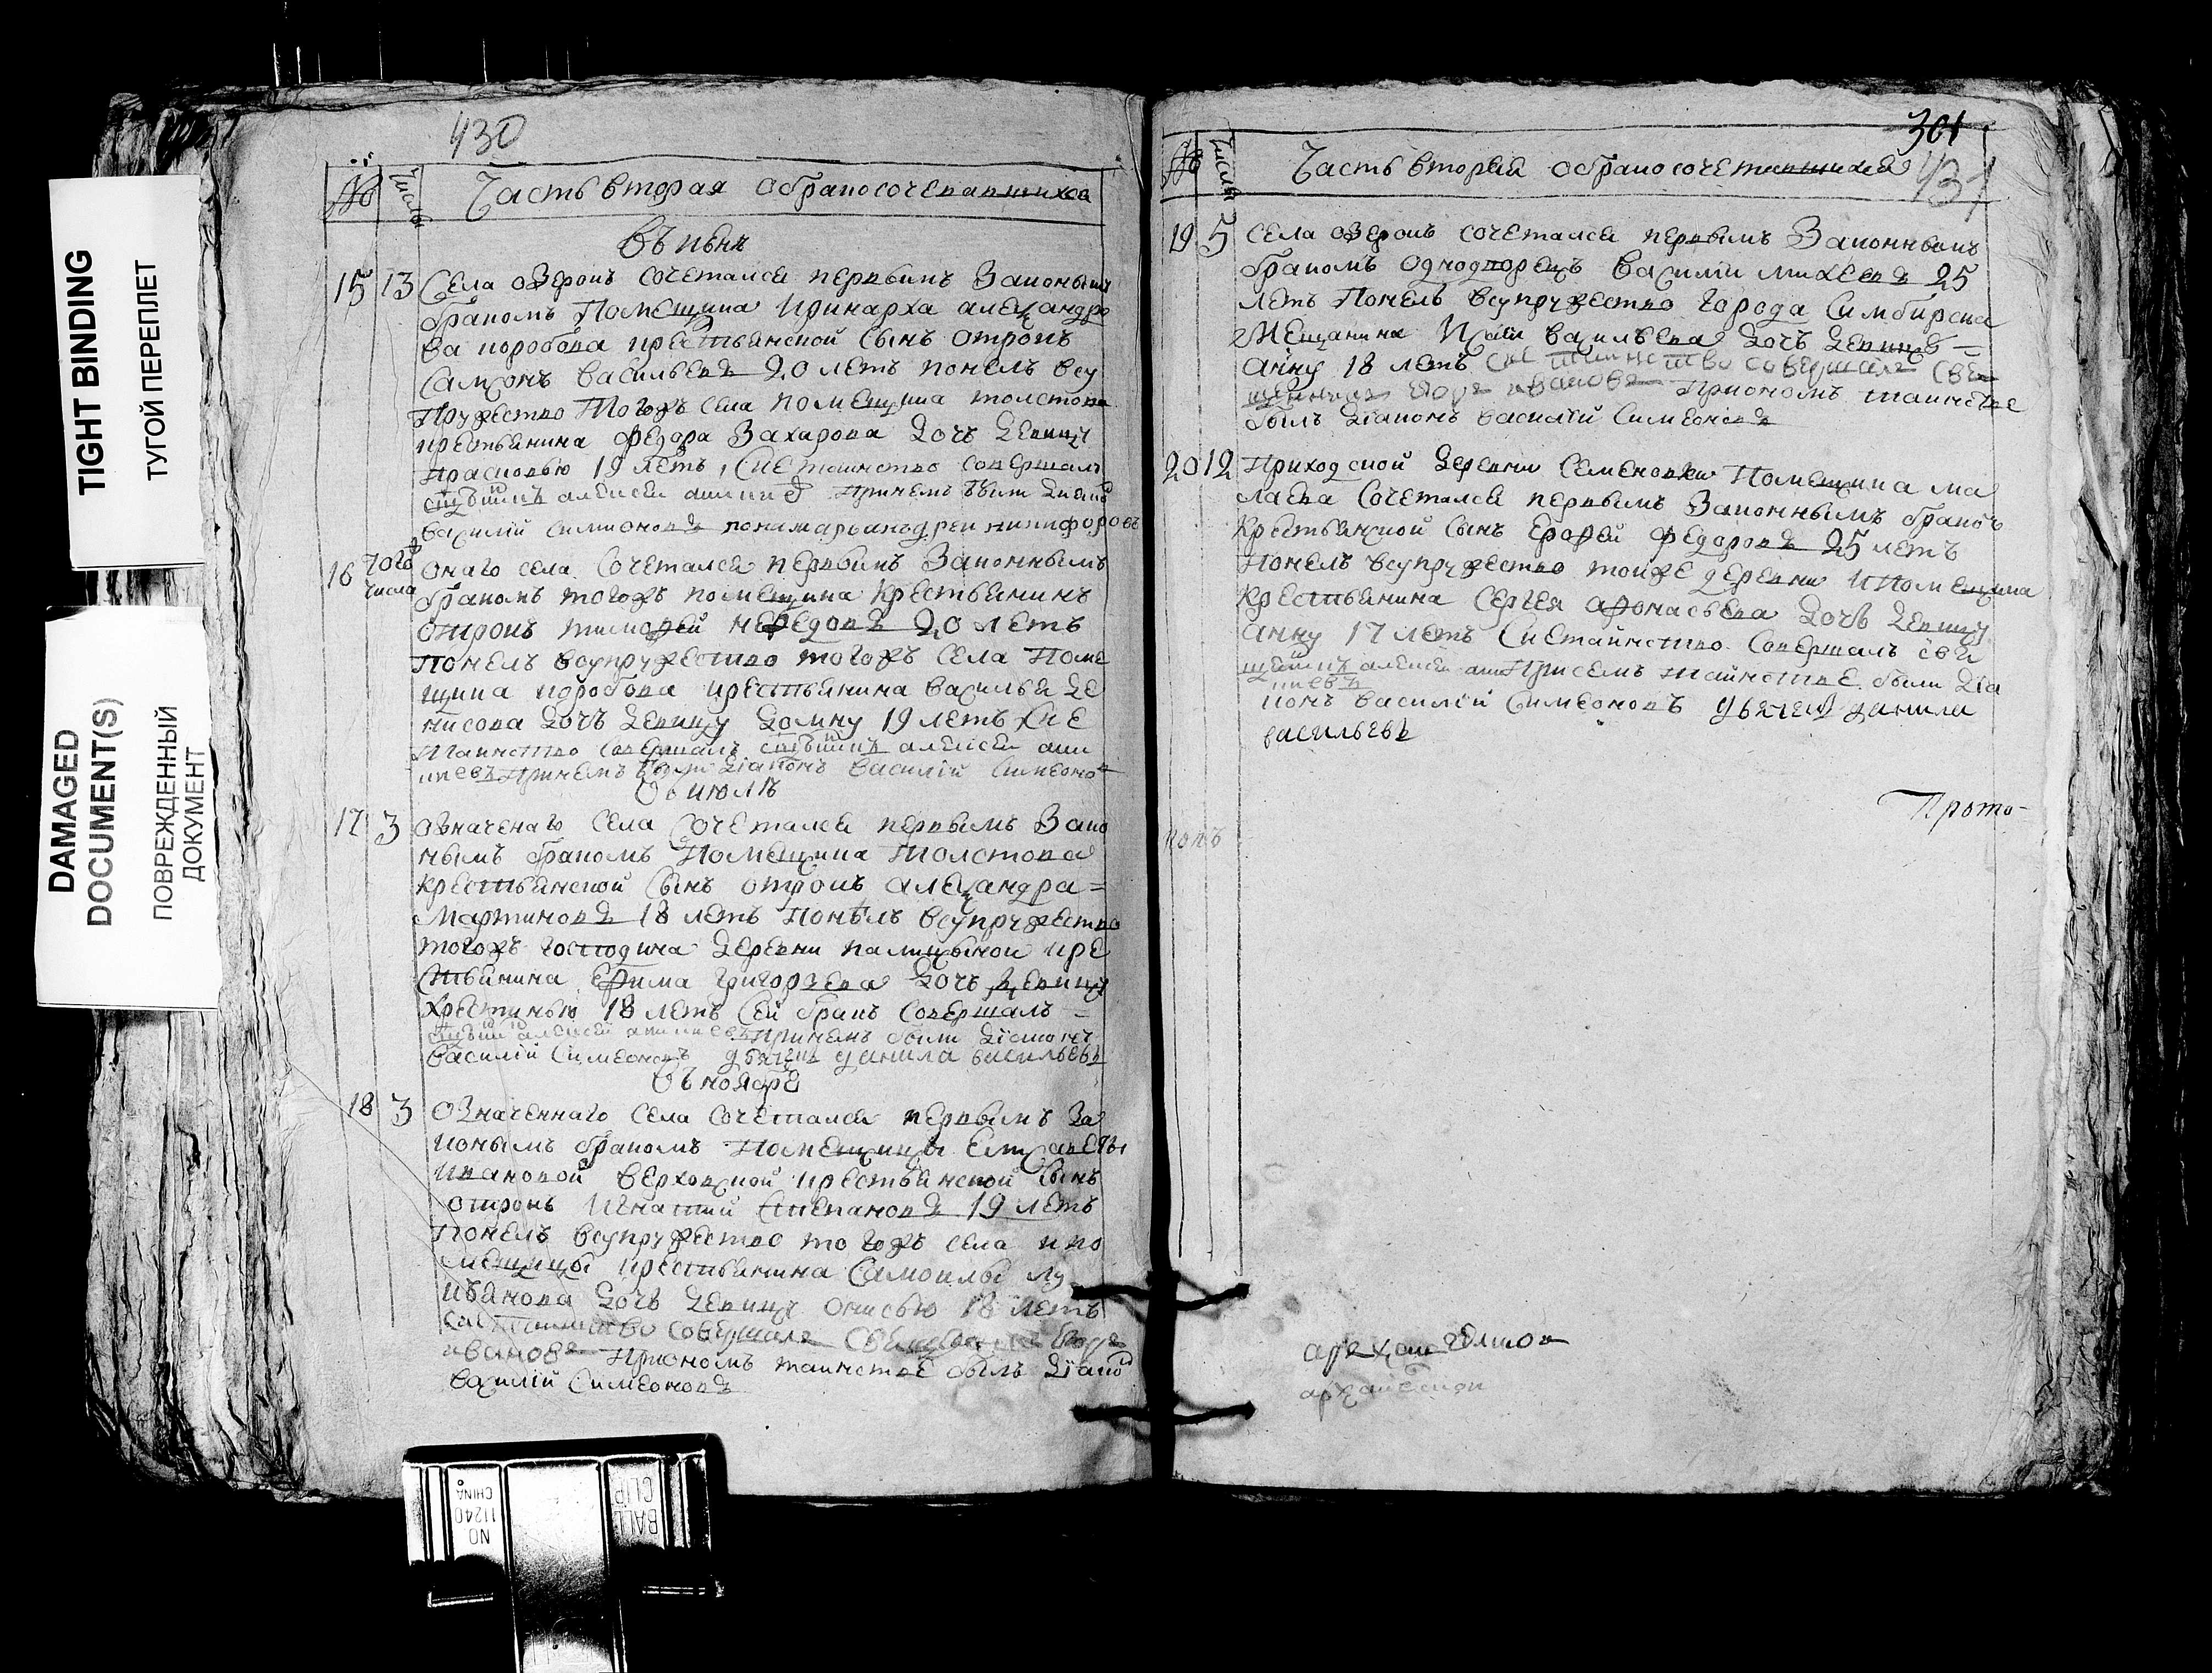 430
№ Числа Часть вторая о бракосочетавшихся
Въ июне
15 13 Села озерокъ сочетался первымъ Законнымъ
бракомъ Помещика Иринарха александро
ва коробова крестьянской сынъ отрокъ
Самсонъ васильевъ 20 летъ понелъ всу
пружество Тогожъ села помещика толстова
крестьянина федора Захарова дочь девицу
прасковью 19 летъ, Сие таинство совершалъ
алексей Причемъ были диаконъ
василий симионовъ пономарь андреи никифоровъ
16 того числа онаго села Сочетался первымъ Законнымъ
бракомъ тогожъ помещика Крестьянинъ
отрокъ тимофей нефедовъ 20 летъ
понелъ всупружество тогожъ села Поме
щика коробова крестьянина василья де
нисова дочь девицу домну 19 летъ Сие
Таинство совершалъ алексеи
Причемъ были диаконъ василий симионо
Въ июлѣ
17 3 означенаго села Сочетался первымъ Зако
нымъ бракомъ Помещика Толстова
Крестьянской сынъ отрокъ александра =
Мартиновъ 18 летъ Понелъ всупружество
тогожъ господина деревни палицыной кре
стьянина ефима григорьева дочь девицу
Хрестинью 18 летъ Сей бракъ совершалъ =
алексей Причемъ были диаконъ
василий симеоновъ дьячекъ данила васильевъ
Въ ноябре
18 3 Означеннаго села сочетался первымъ За
конымъ бракомъ Помещицы Елизаветы
ивановой верховской крестьянской сынъ
отрокъ Игнатий Степановъ 19 летъ
Понелъ всупружество тогожъ села и по
мещицы крестьянина Самоилы лу
кьянова дочь девицу онисью 18 летъ
Сие таинство совершалъ Священникъ
ивановъ Приономъ таинстве былъ диако
василий Симеоновъ
301
431
№ Числа Часть вторая о бракосочетавшихся
19 5 Села озерокъ сочетался первымъ Законнымъ
бракомъ однодворецъ василий михеевъ 25
летъ Понелъ всупружество города Симбирска
Мещанина васильева дочь девицу =
анну 18 летъ Сие таинство совершалъ Све
щенникъ ивановъ Приономъ таинстве
былъ диаконъ василий Симеоновъ
20 12 Приходской деревни Семеновки Помещика ма
лаева Сочетался первымъ Законнымъ бракомъ
Крестьянской сынъ Ерофей федоровъ 25 летъ
Понелъ всупружество тойже деревни и помещика
Крестьянина Сергея афонасьева дочь девицу
анну 17 летъ Сие таинство совершалъ свя
алексеи Присемъ таинстве были диа
конъ василий Симеоновъ дьячекъ данила
васильевъ
Прото-
попъ